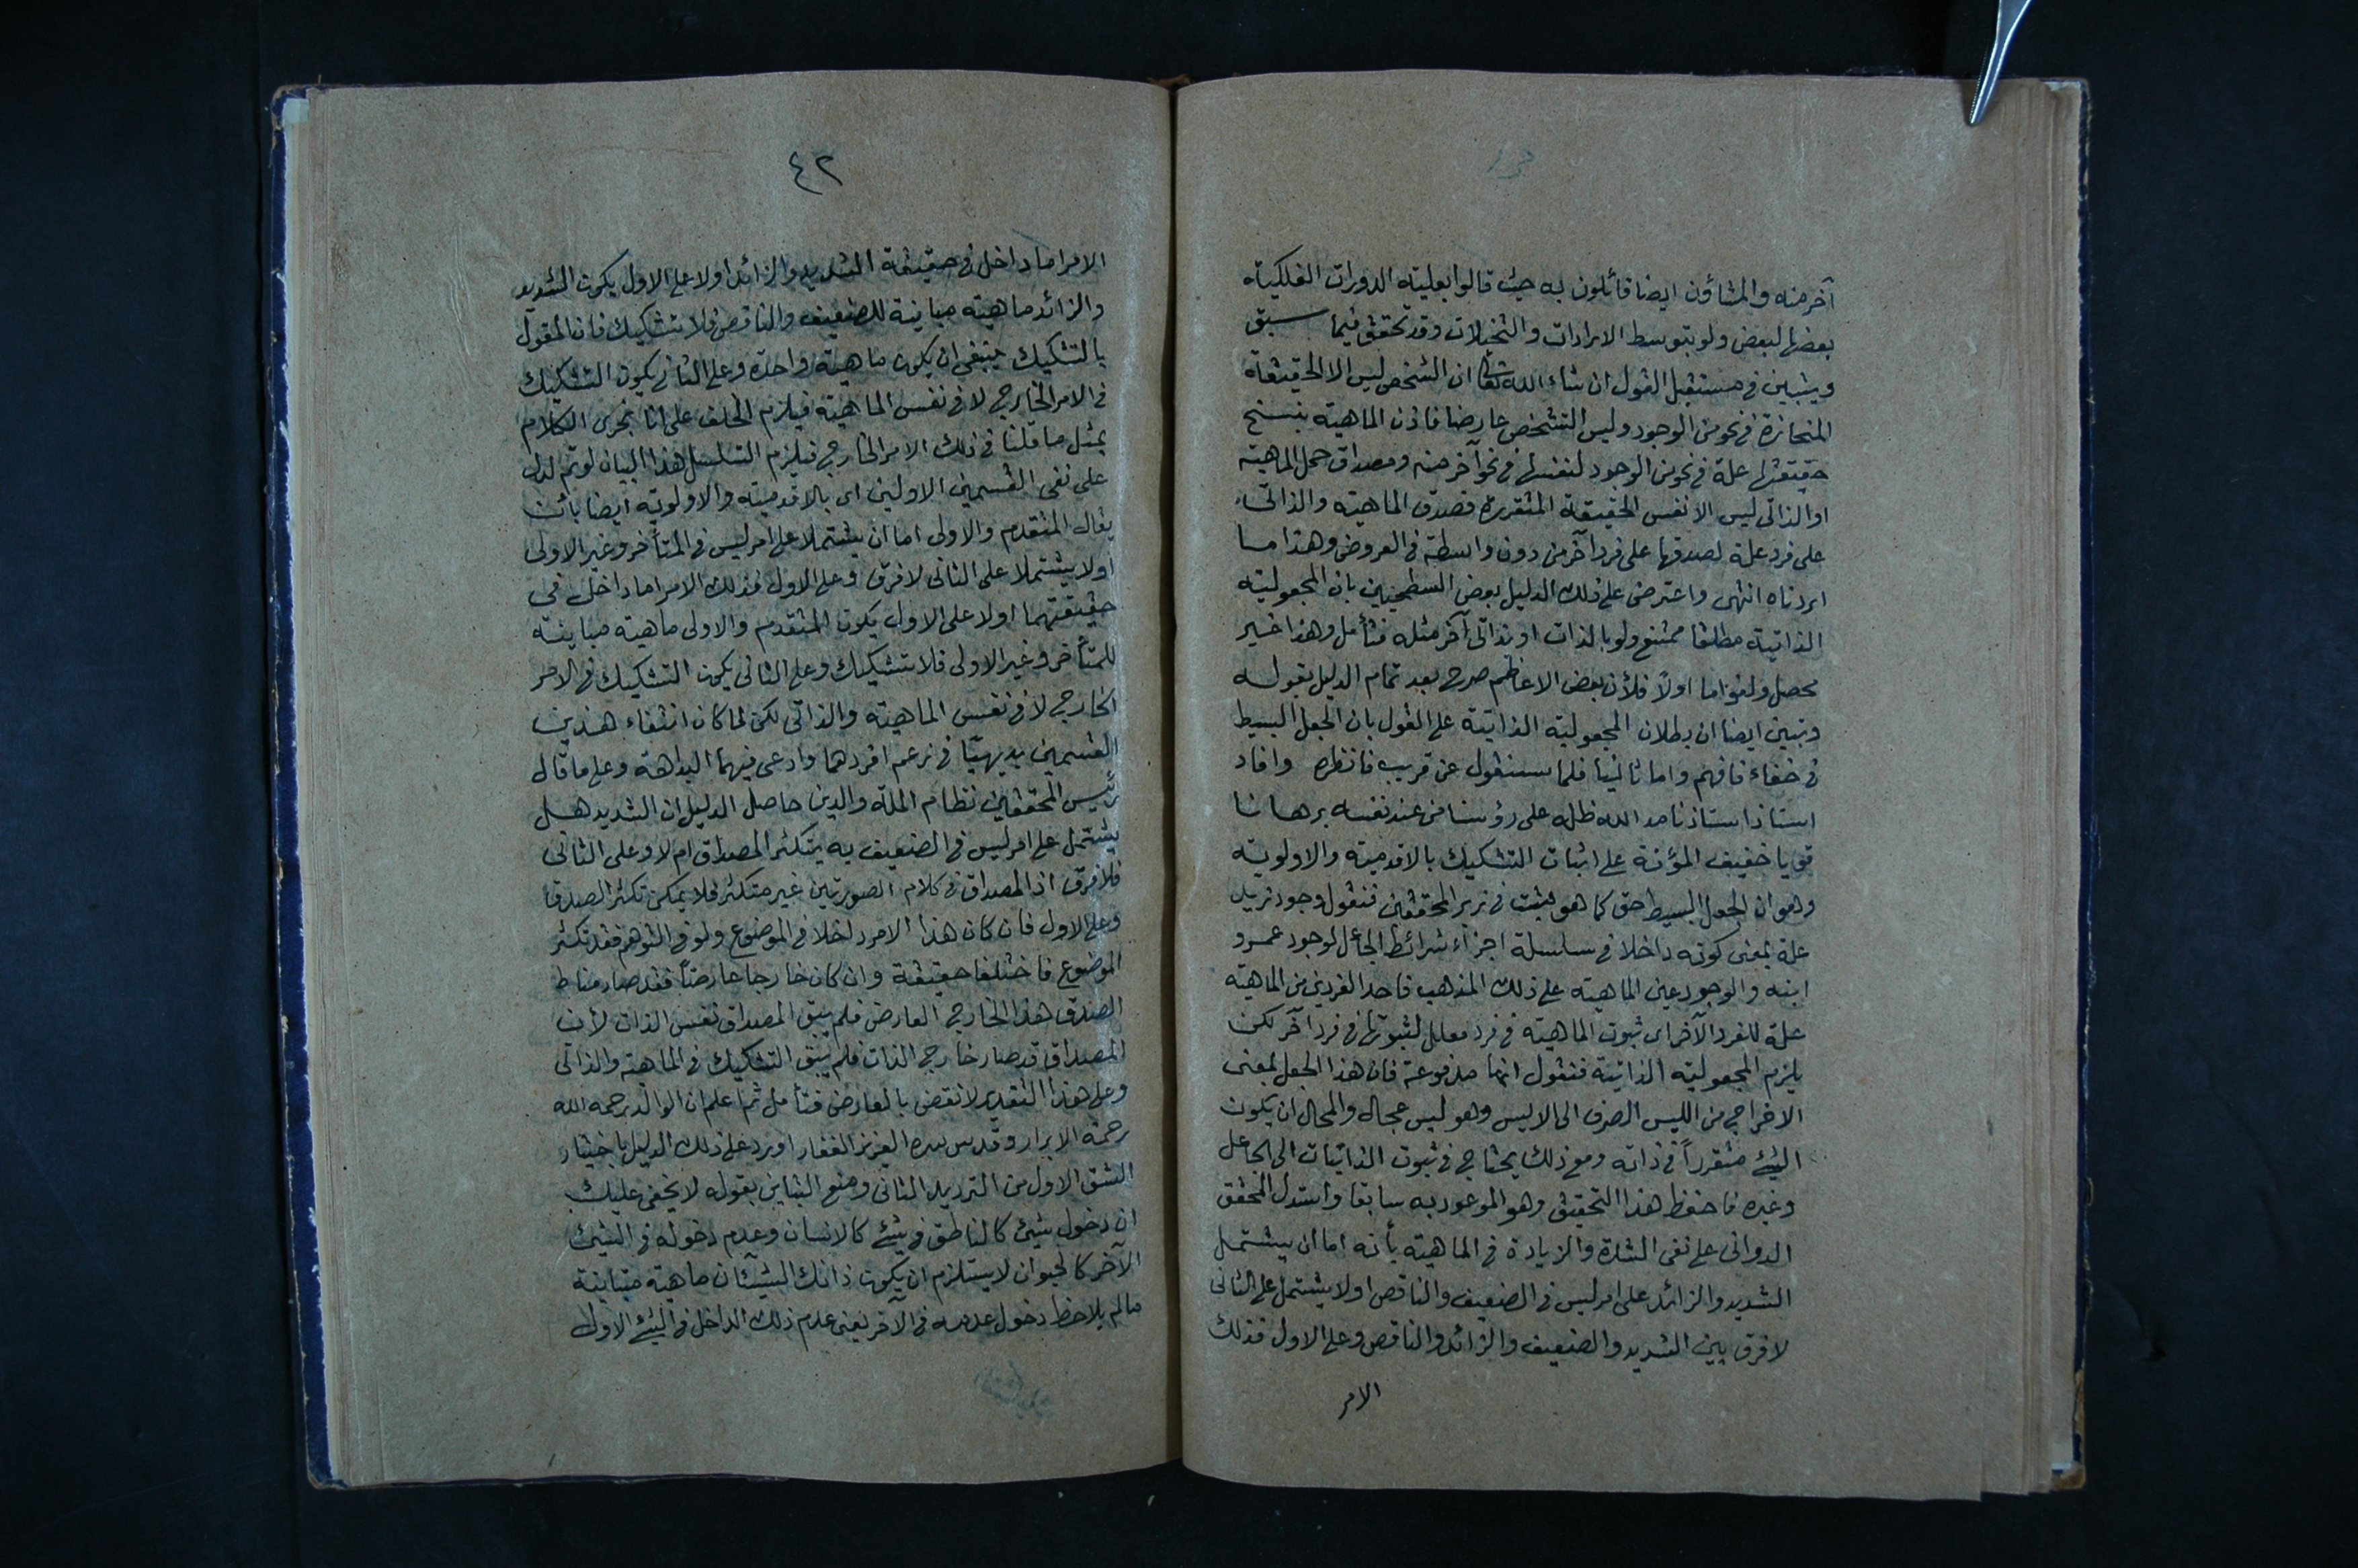 آخر منه والمشاؤن ايضا قائلون به حيث قالوا بعلية الدورات الفلكية
بعضها لبعض ولو بتوسط الارادات والتخيلات وقد تحقق فيما سبق
ويتبين في مستقبل القول ان شاء الله تعالى ان الشخص ليس الا الحقيقة
المنحازة في نحو من الوجود وليس التشخص عارضا فاذن الماهية بسنخ
حقيقتها علة في نحو من الوجود لنفسها في نحو آخر منه ومصداق حمل الماهية
او الذاتي ليس الا نفس الحقيقة المتقررة فصدق الماهية والذاتي
على فرد علة لصدقها على فرد آخر من دون واسطة في العروض وهذا ما
اردناه انتهى واعترض على ذلك الدليل بعض السطحيين بان المجعولية
الذاتية مطلقا ممتنع ولو بالذات او بذاتي آخر مثله فتأمل وهذا خير
محصل ولغو اما اولاً فلأن بعض الاعاظم صرح بعد تمام الدليل بقوله
وتبين ايضا ان بطلان المجعولية الذاتية على القول بان الجعل البسيط
في خفاء فافهم واما ثانيا فلما سنقول عن قريب فانظره وافاد
استاذ استاذنا مد الله ظله على رؤسنا من عند نفسه برهانا
قويا خفيف المؤنة على اثبات التشكيك بالاقدمية والاولوية
وهو ان الجعل البسيط حق كما هو مثبت في زبر المحققين فنقول وجود زيد
علة بمعنى كونه داخلا في سلسلة اجزاء شرائط الجاعل لوجود عمرو
ابنه والوجود عين الماهية على ذلك المذهب فاحد الفردين من الماهية
علة للفرد الآخر اى ثبوت الماهية في فرد معلل لثبوتها في فرد آخر لكن
يلزم المجعولية الذاتية فنقول انها مدفوعة فان هذا الجعل بمعنى
الاخراج من الليس الصرف الى الايس وهو ليس بمحال والمحال ان يكون
الشيء متقرراً في ذاته ومع ذلك يحتاج في ثبوت الذاتيات الى الجاعل
وغيره فاحفظ هذا التحقيق وهو الموعود به سابقا واستدل المحقق
الدواني على نفي الشدة والزيادة في الماهية بأنه اما ان يشتمل
الشديد والزائد على امر ليس في الضعيف والناقص او لا يشتمل على الثاني
لا فرق بين الشديد والضعيف والزائد والناقص وعلى الاول فذلك
الامر
٤٢
الامر اما داخل في حقيقة الشديد والزائد او لا على الاول يكون الشديد
والزائد ماهية مباينة للضعيف والناقص فلا تشكيك فان المقول
بالتشكيك ينبغي ان يكون ماهية واحدة وعلى الثاني يكون التشكيك
في الامر الخارجي لا في نفس الماهية فيلزم الخلف على انا نجري الكلام
بمثل ما قلنا في ذلك الامر الخارجي فيلزم التسلسل هذا البيان لو تم لدل
على نفي القسمين الاولين اى بالاقدمية والاولوية ايضا بأن
يقال المتقدم والاولى اما ان يشتملا على امر ليس في المتأخر وغير الاولى
او لا يشتملا على الثاني لا فرق وعلى الاول فذلك الامر اما داخل في
حقيقتهما او لا على الاول يكون المتقدم والاولى ماهية مباينة
للمتأخر وغير الاولى فلا تشكيك وعلى الثاني يكون التشكيك في الامر
الخارجي لا في نفس الماهية والذاتي لكن لما كان انتفاء هذين
القسمين بديهيًا في زعم افردهما وادعى فيهما البداهة وعلى ما قال
رئيس المحققين نظام الملة والدين حاصل الدليل ان الشديد هل
يشتمل على امر ليس في الضعيف به يتكثر المصداق ام لا وعلى الثاني
فلا فرق اذ المصداق في كلام الصورتين غير متكثر فلا يمكن تكثر الصدق
وعلى الاول فان كان هذا الامر داخلا في الموضوع ولو في التوهم فقد تكثر
الموضوع فاختلفا حقيقة وان كان خارجا عارضاً فقد صار مناط
الصدق هذا الخارجي العارض فلم يبق المصداق نفس الذات لأن
المصداق قد صار خارجي الذات فلم يبق التشكيك في الماهية والذاتي
وعلى هذا التقدير لا نقض بالعارض فتأمل ثم اعلم ان الوالد رحمه الله
رحمة الابرار وقدس سره العزيز الغفار اورد على ذلك الدليل باختيار
الشق الاول من الترديد الثاني ومنع التباين بقوله لا يخفى عليك
ان دخول شيئ كالناطق في شيئ كالانسان وعدم دخوله في الشيئ
الآخر كالحيوان لا يستلزم ان يكون ذانك الشيئان ماهية متباينة
مالم يلاحظ دخول عدمه في الآخر يعني عدم ذلك الداخل في الشيئ الاول